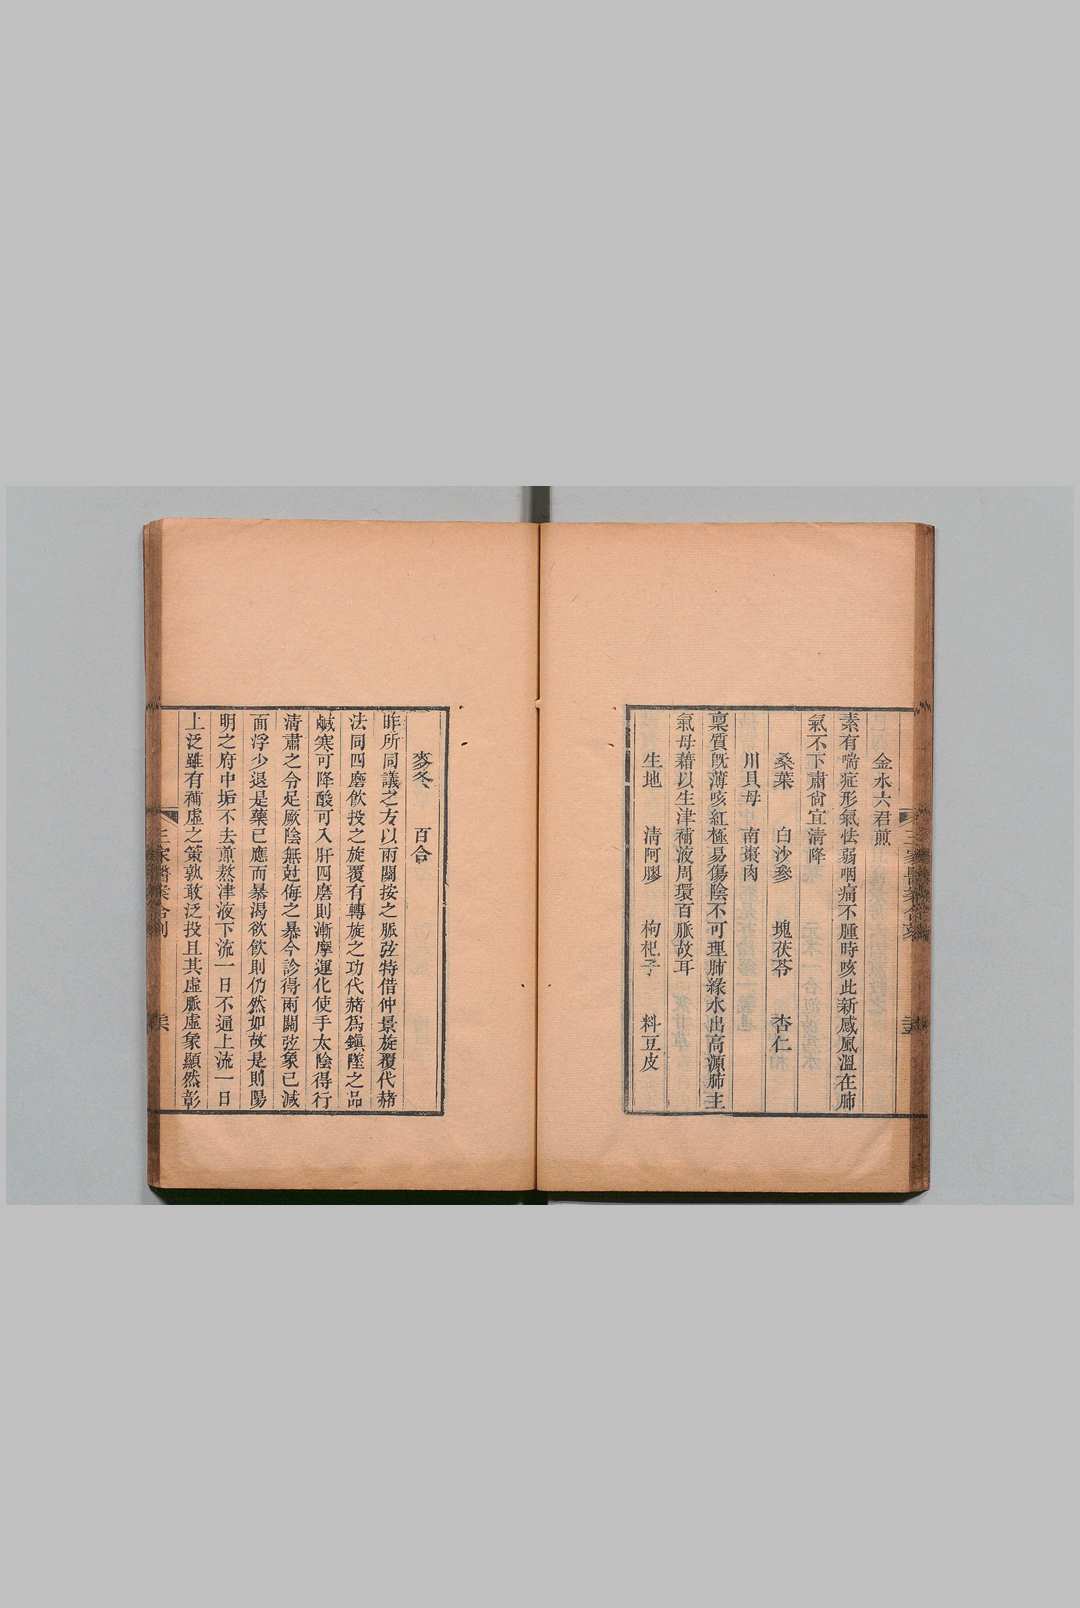 金水六君煎
素有喘症形氣怯弱咽痛不腫時咳此新感風溫在肺
氣不下肅尙宜清降
桑葉　白沙參　塊茯苓　杏仁
川貝母　南棗肉
稟質旣薄咳紅極易傷陰不可理肺緣水出高源肺主
氣母藉以生津補液周環百脈故耳
生地　清阿膠　枸杞子　料豆皮
麥冬　百合
昨所同議之方以兩關按之脈弦特借仲景旋覆代赭
法同四磨飲投之旋覆有轉旋之功代赭爲鎭墜之品
鹹寒可降酸可入肝四磨則漸摩運化使手太陰得行
清肅之令足厥陰無尅侮之暴今診得兩關弦象已減
面浮少退是藥已應而暴渴欲飲則仍然如故是則陽
明之府中垢不去煎熬津液下流一日不通上流一日
上泛雖有補虛之策孰敢泛投且其虛脈虛象顯然彰
三家醫案合刻